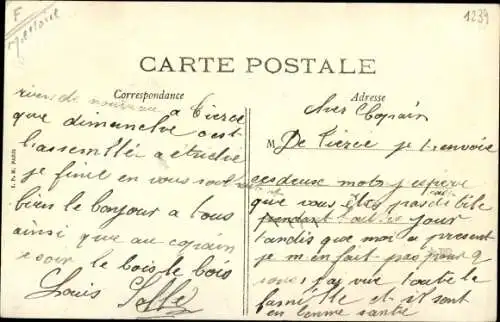 F
Maine et Loire
1239
CARTE POSTALE
Correspondance
Adresse
Cher Copain
M De Tierce je t envoie
ces deux mots j espere
que vous êtes pas débile
pendant tout ce jour
tandis que moi a present
je m en fait pas pour q
j ai vue toute la
famille et il sont
en bonne santé
rien de nouveau a Tierce
que dimanche c est
l assemblé a etriche
je finit en vous souhaitant
bien le bonjour a tous
ainsi que au copain
le bois le bois
Louis Sallé
PARIS